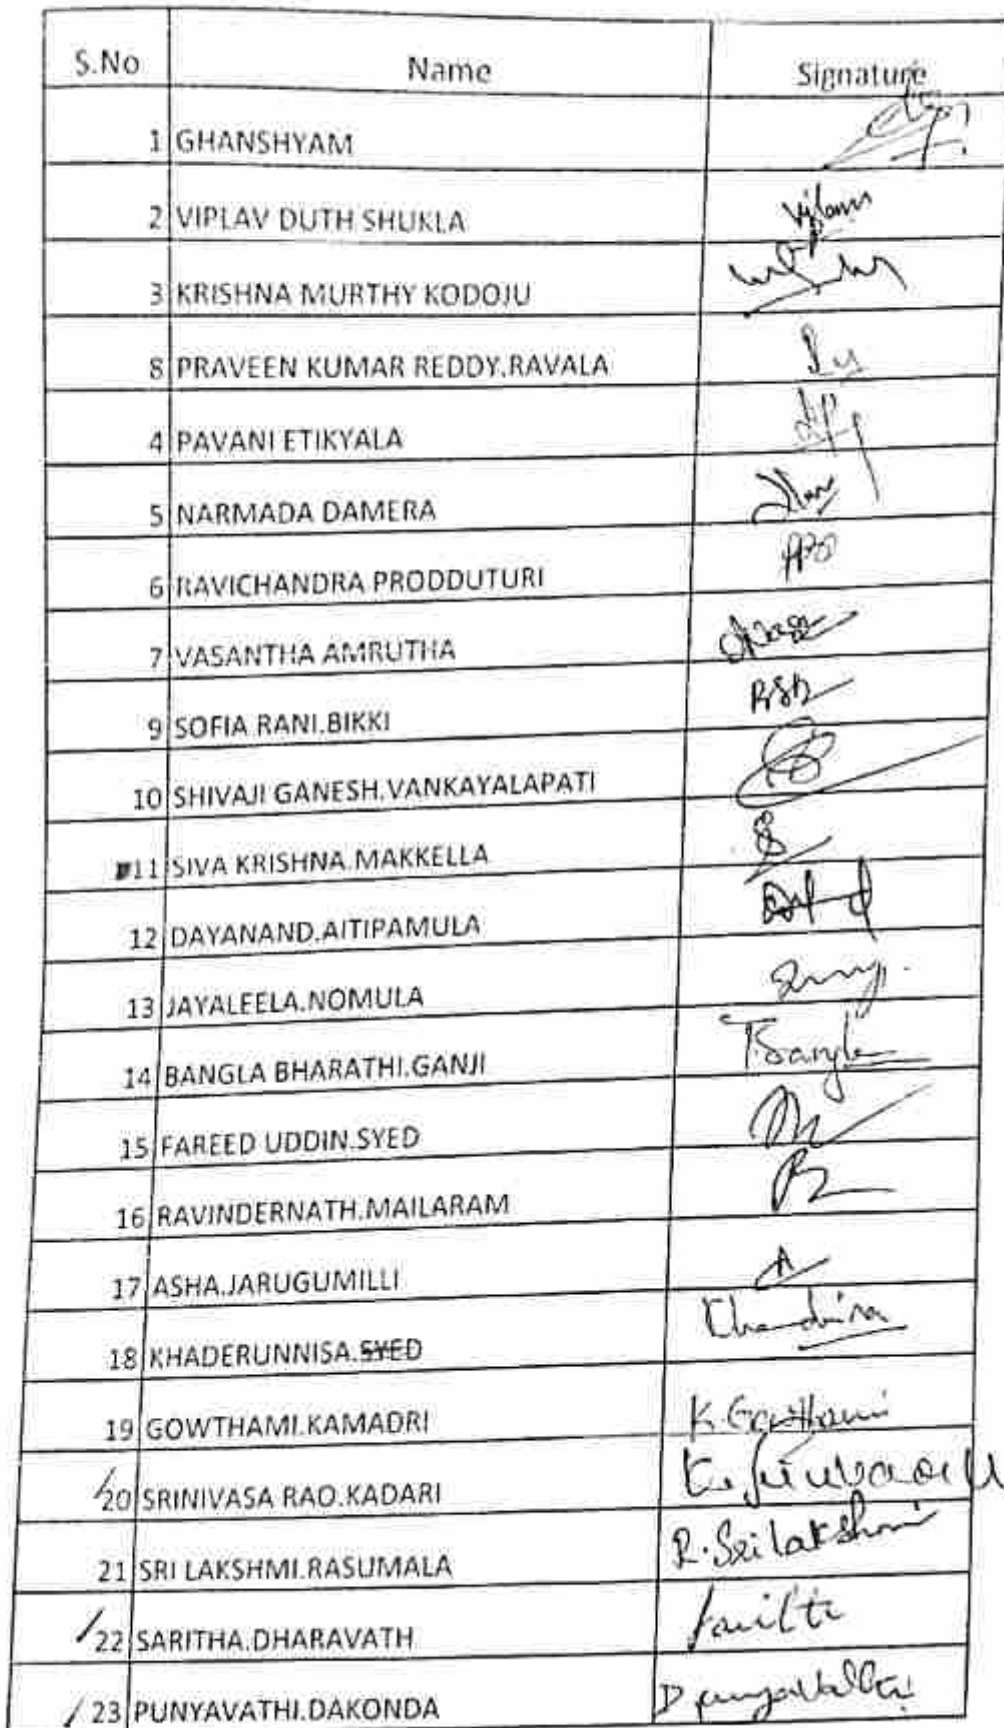 S.No Name Signature
1 GHANSHYAM
2 VIPLAV DUTH SHUKLA
3 KRISHNA MURTHY KODOJU
8 PRAVEEN KUMAR REDDY.RAVALA
4 PAVANI ETIKYALA
5 NARMADA DAMERA
6 RAVICHANDRA PRODDUTURI
7 VASANTHA AMRUTHA
9 SOFIA RANI.BIKKI
10 SHIVAJI GANESH.VANKAYALAPATI
11 SIVA KRISHNA.MAKKELLA
12 DAYANAND.AITIPAMULA
13 JAYALEELA.NOMULA
14 BANGLA BHARATHI.GANJI
15 FAREED UDDIN.SYED
16 RAVINDERNATH.MAILARAM
17 ASHA.JARUGUMILLI A
18 KHADERUNNISA.SYED
19 GOWTHAMI.KAMADRI K.Gowthami
20 SRINIVASA RAO.KADARI
21 SRI LAKSHMI.RASUMALA R.Srilakshmi
22 SARITHA.DHARAVATH
23 PUNYAVATHI.DAKONDA D punyavathi